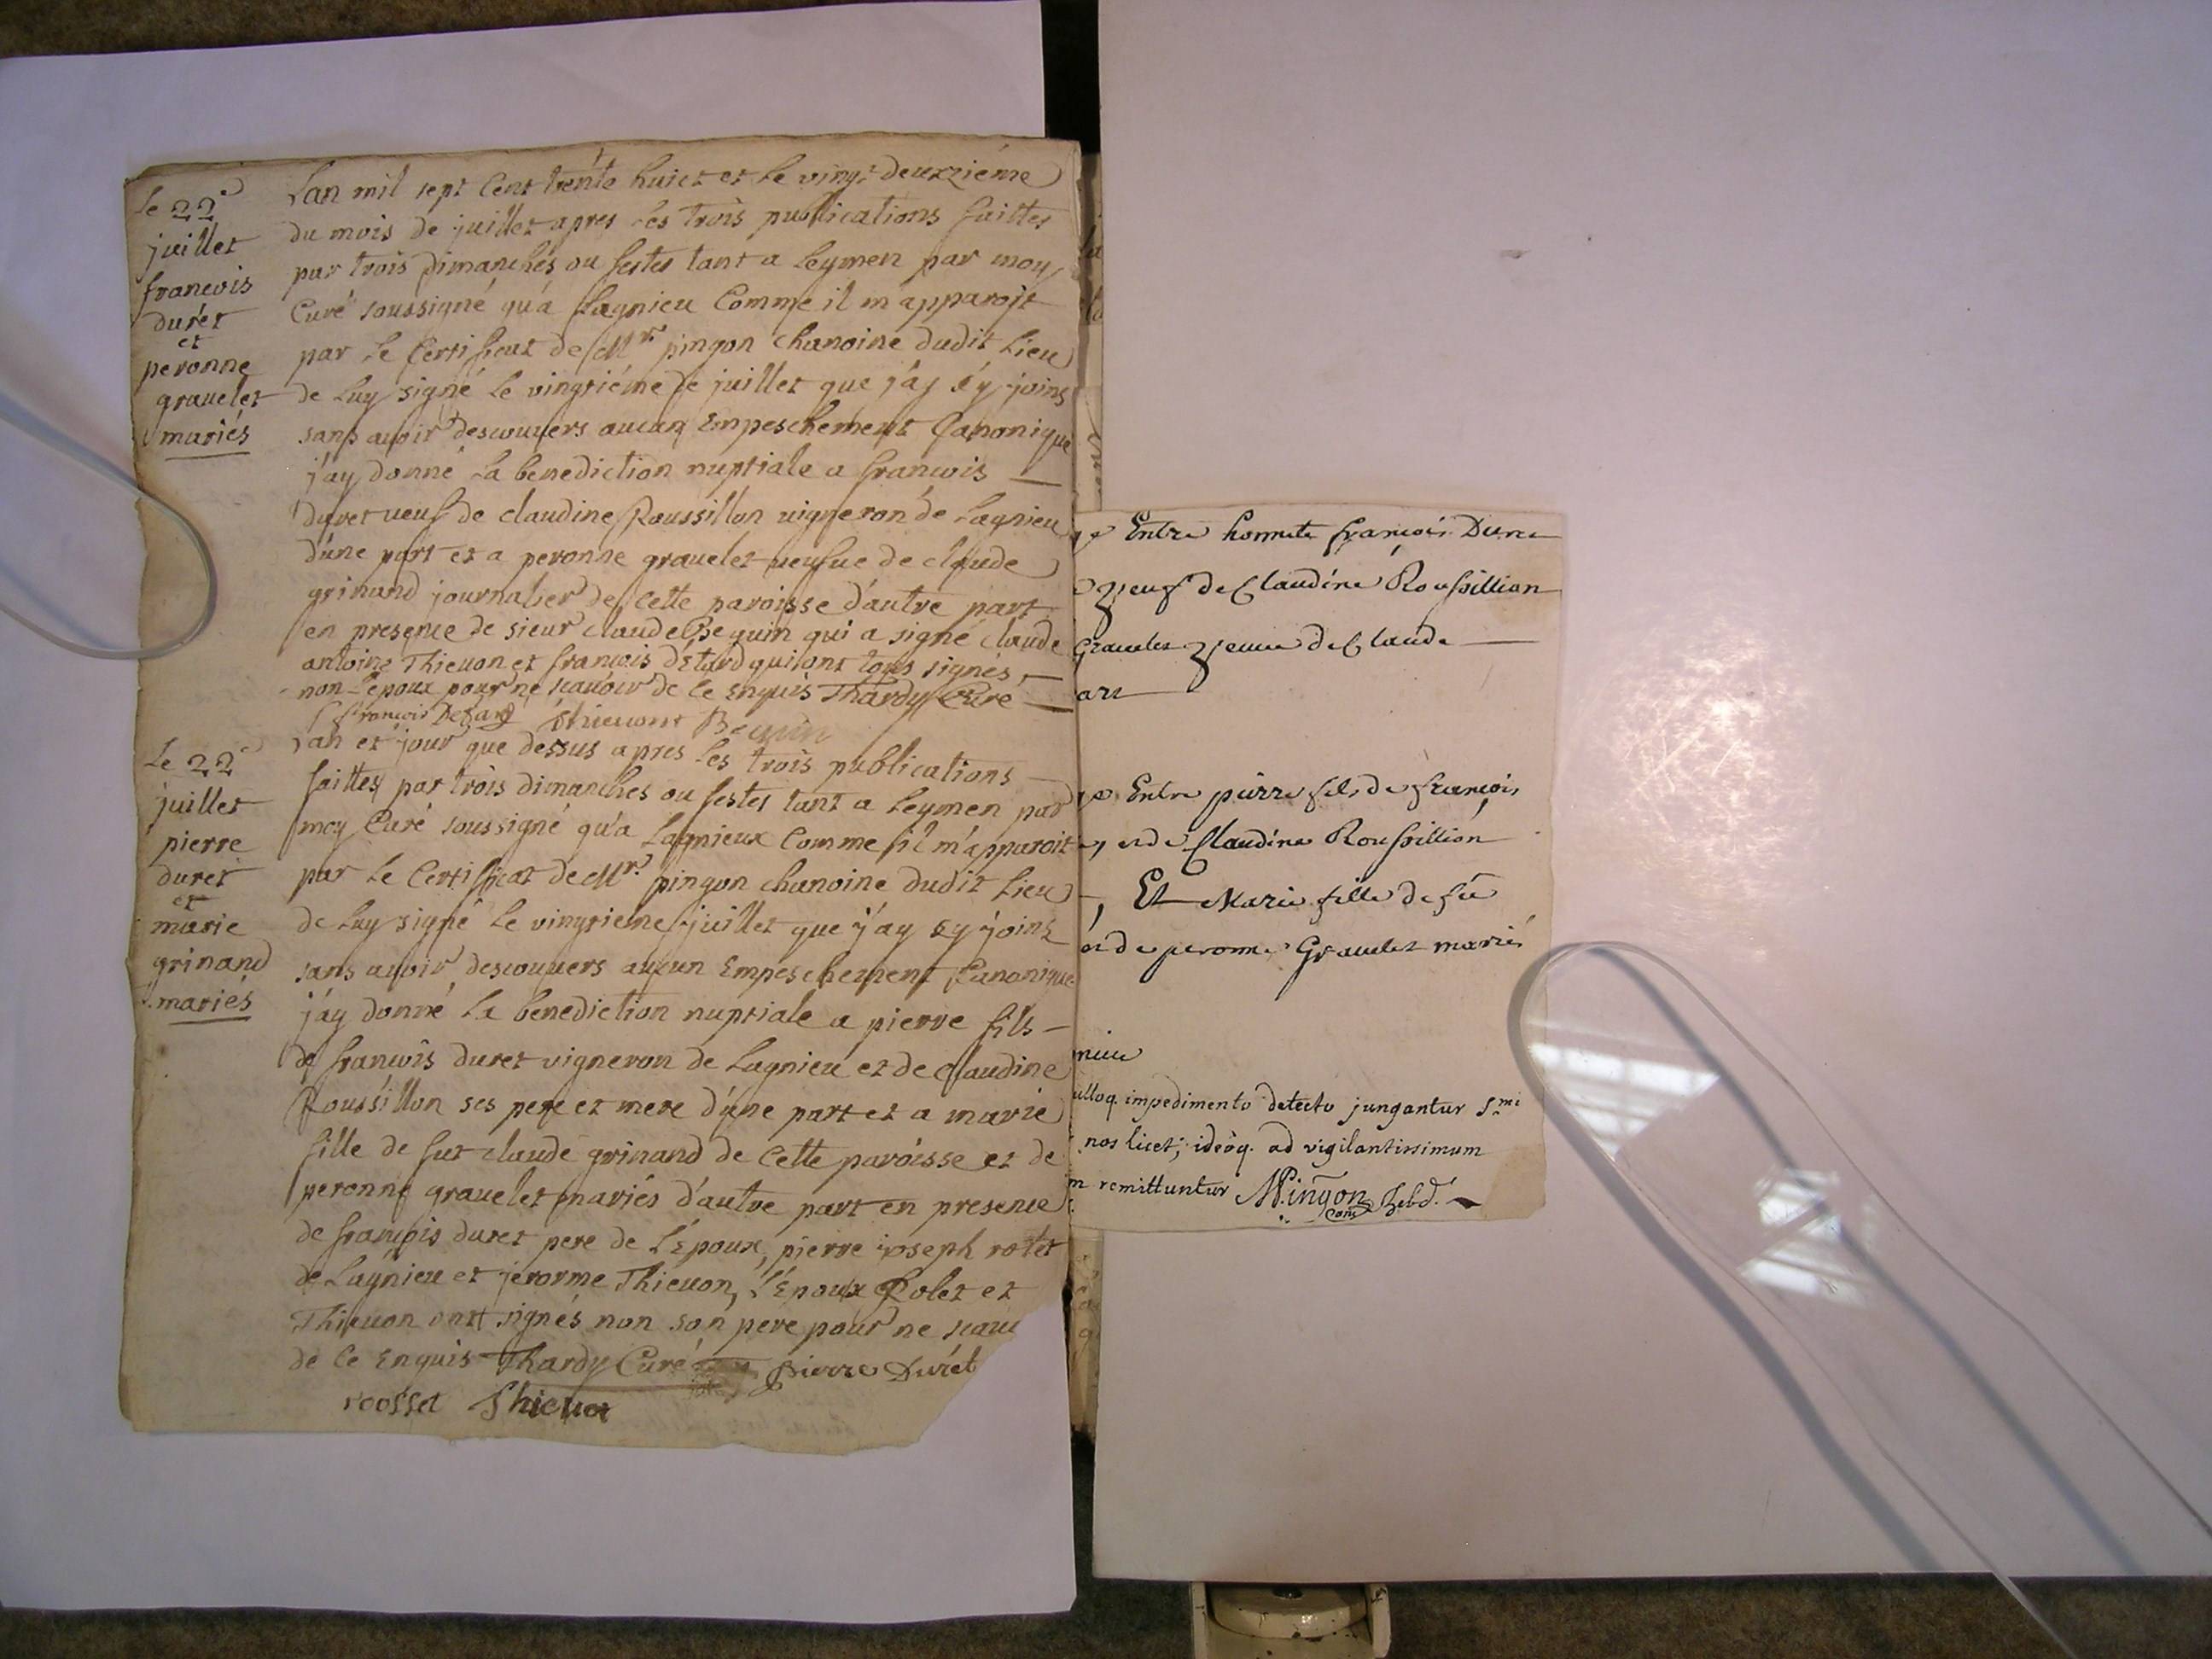 Le 22e
juillet
francois
duret
et
peronne
grauelet
mariés
Lan mil sept Cent trente huict et le vingt deuxziéme
du mois de juillet apres les trois publications faittes
par trois dimanches ou festes tant a Leymen par moy
Curé soussigné qu'a Lagnieu Comme il m'apparoit
par le Certificat de Mr. pingon chanoine dudit Lieu
de Luy signé Le vingtiéme de juillet que j'ay sy joins
sans avoir descouuers aucun Empeschement Canonique
j'ay donné La benediction nuptiale a francois
duret ueuf de claudine Roussillon uigneron de Lagnieu
d'une part et a peronne grauelet ueufue de claude
grinand journalier de Cette paroisse d'autre part
en presence de sieur claude Beguin qui a signé claude
antoine Thieuon et francois détard qui ont tous signés
non L'epoux pour ne scauoir de ce Enquis Thardy Curé
francois Detard Thieuont Beguin
Le 22e
juillet
pierre
duret
et
marie
grinand
mariés
Lan et jour que dessus apres les trois publications
faittes par trois dimanches ou festes tant a Leymen par
moy Curé soussigné qu'a Lagnieux Comme il m'apparoit
par le Certificat de Mr. pingon chanoine dudit Lieu
de Luy signé Le vingtieme juillet que j'ay sy joins
sans auoir descouuers aucun Empeschement Canonique
j'ay donné La benediction nuptiale a pierre fils
de francois duret vigneron de Lagnieu et de Claudine
Roussillon ses pere et mere d'une part et a marie
fille de fut claude grinand de Cette paroisse et de
peronne grauelet mariés d'autre part en presence
de francois duret pere de L'Epoux, pierre joseph rolet
de Lagnieu et jerorme Thieuon, L'Epoux Rolet et
Thieuon ont signés non son pere pour ne scau
de ce Enquis Thardy Curé Pierre Duret
Entre honnete francois Duret
Veuf de Claudine Roussillion
Grauelet Veuue de Claude
art
Entre pierre fils de francois
et de Claudine Roussillion
Et Marie fille de fû
et de peronne Grauelet mariés
nieu
ulloq. impedimento detecto jungantur s.mi
nos licet; ideòq. ad vigilantissimum
m remittuntur Pingon Can. hebd.